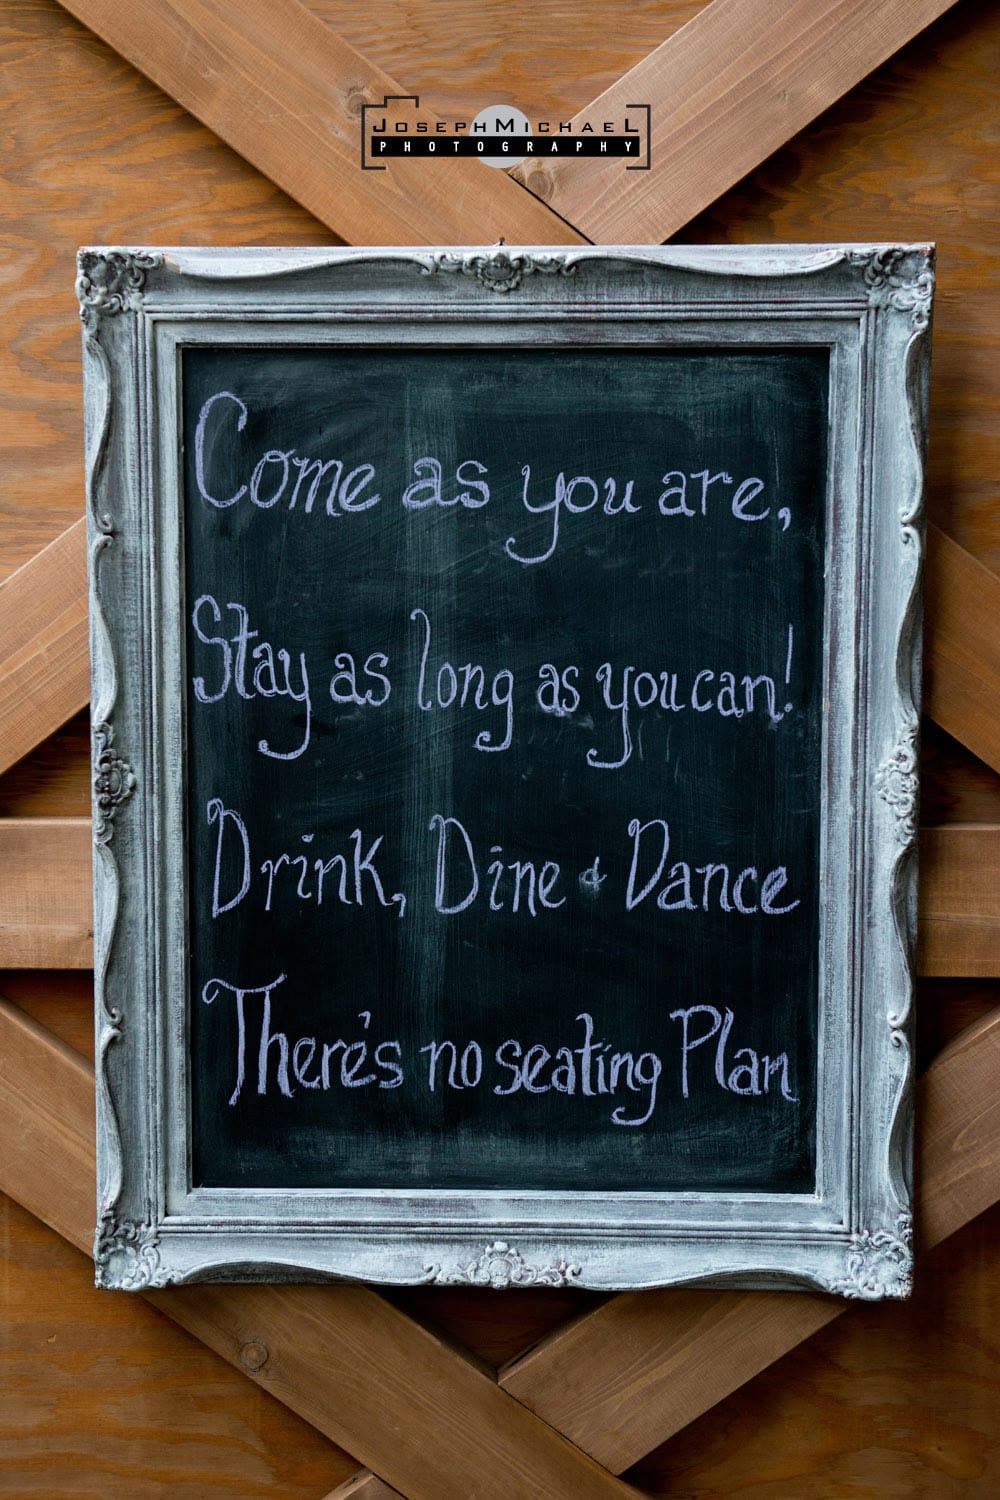 JOSEPHMICHAEL
PHOTOGRAPHY
Come as you are,
Stay as long as you can!
Drink, Dine & Dance
There's no seating Plan